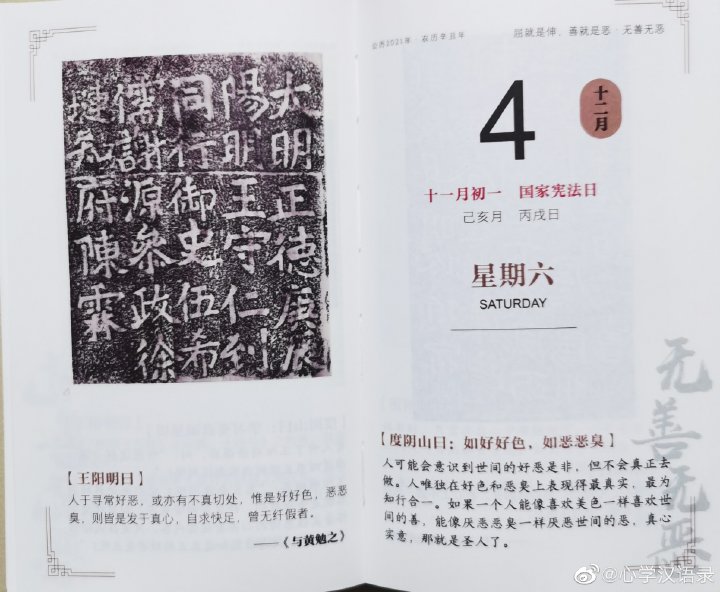 大明正德庚辰
陽明王守仁到
同行御史伍希
儒謝源參政徐
璉知府陳霖
【王阳明曰】
人于寻常好恶，或亦有不真切处，惟是好好色，恶恶
臭，则皆是发于真心，自求快足，曾无纤假者。
——《与黄勉之》
公历2021年 · 农历辛丑年
屈就是伸，善就是恶 · 无善无恶
4
十二月
十一月初一 国家宪法日
己亥月 丙戌日
星期六
SATURDAY
【度阴山曰：如好好色，如恶恶臭】
人可能会意识到世间的好恶是非，但不会真正去
做。人唯独在好色和恶臭上表现得最真实，最为
知行合一。如果一个人能像喜欢美色一样喜欢世
间的善，能像厌恶恶臭一样厌恶世间的恶，真心
实意，那就是圣人了。
无善无恶
@心学汉语录